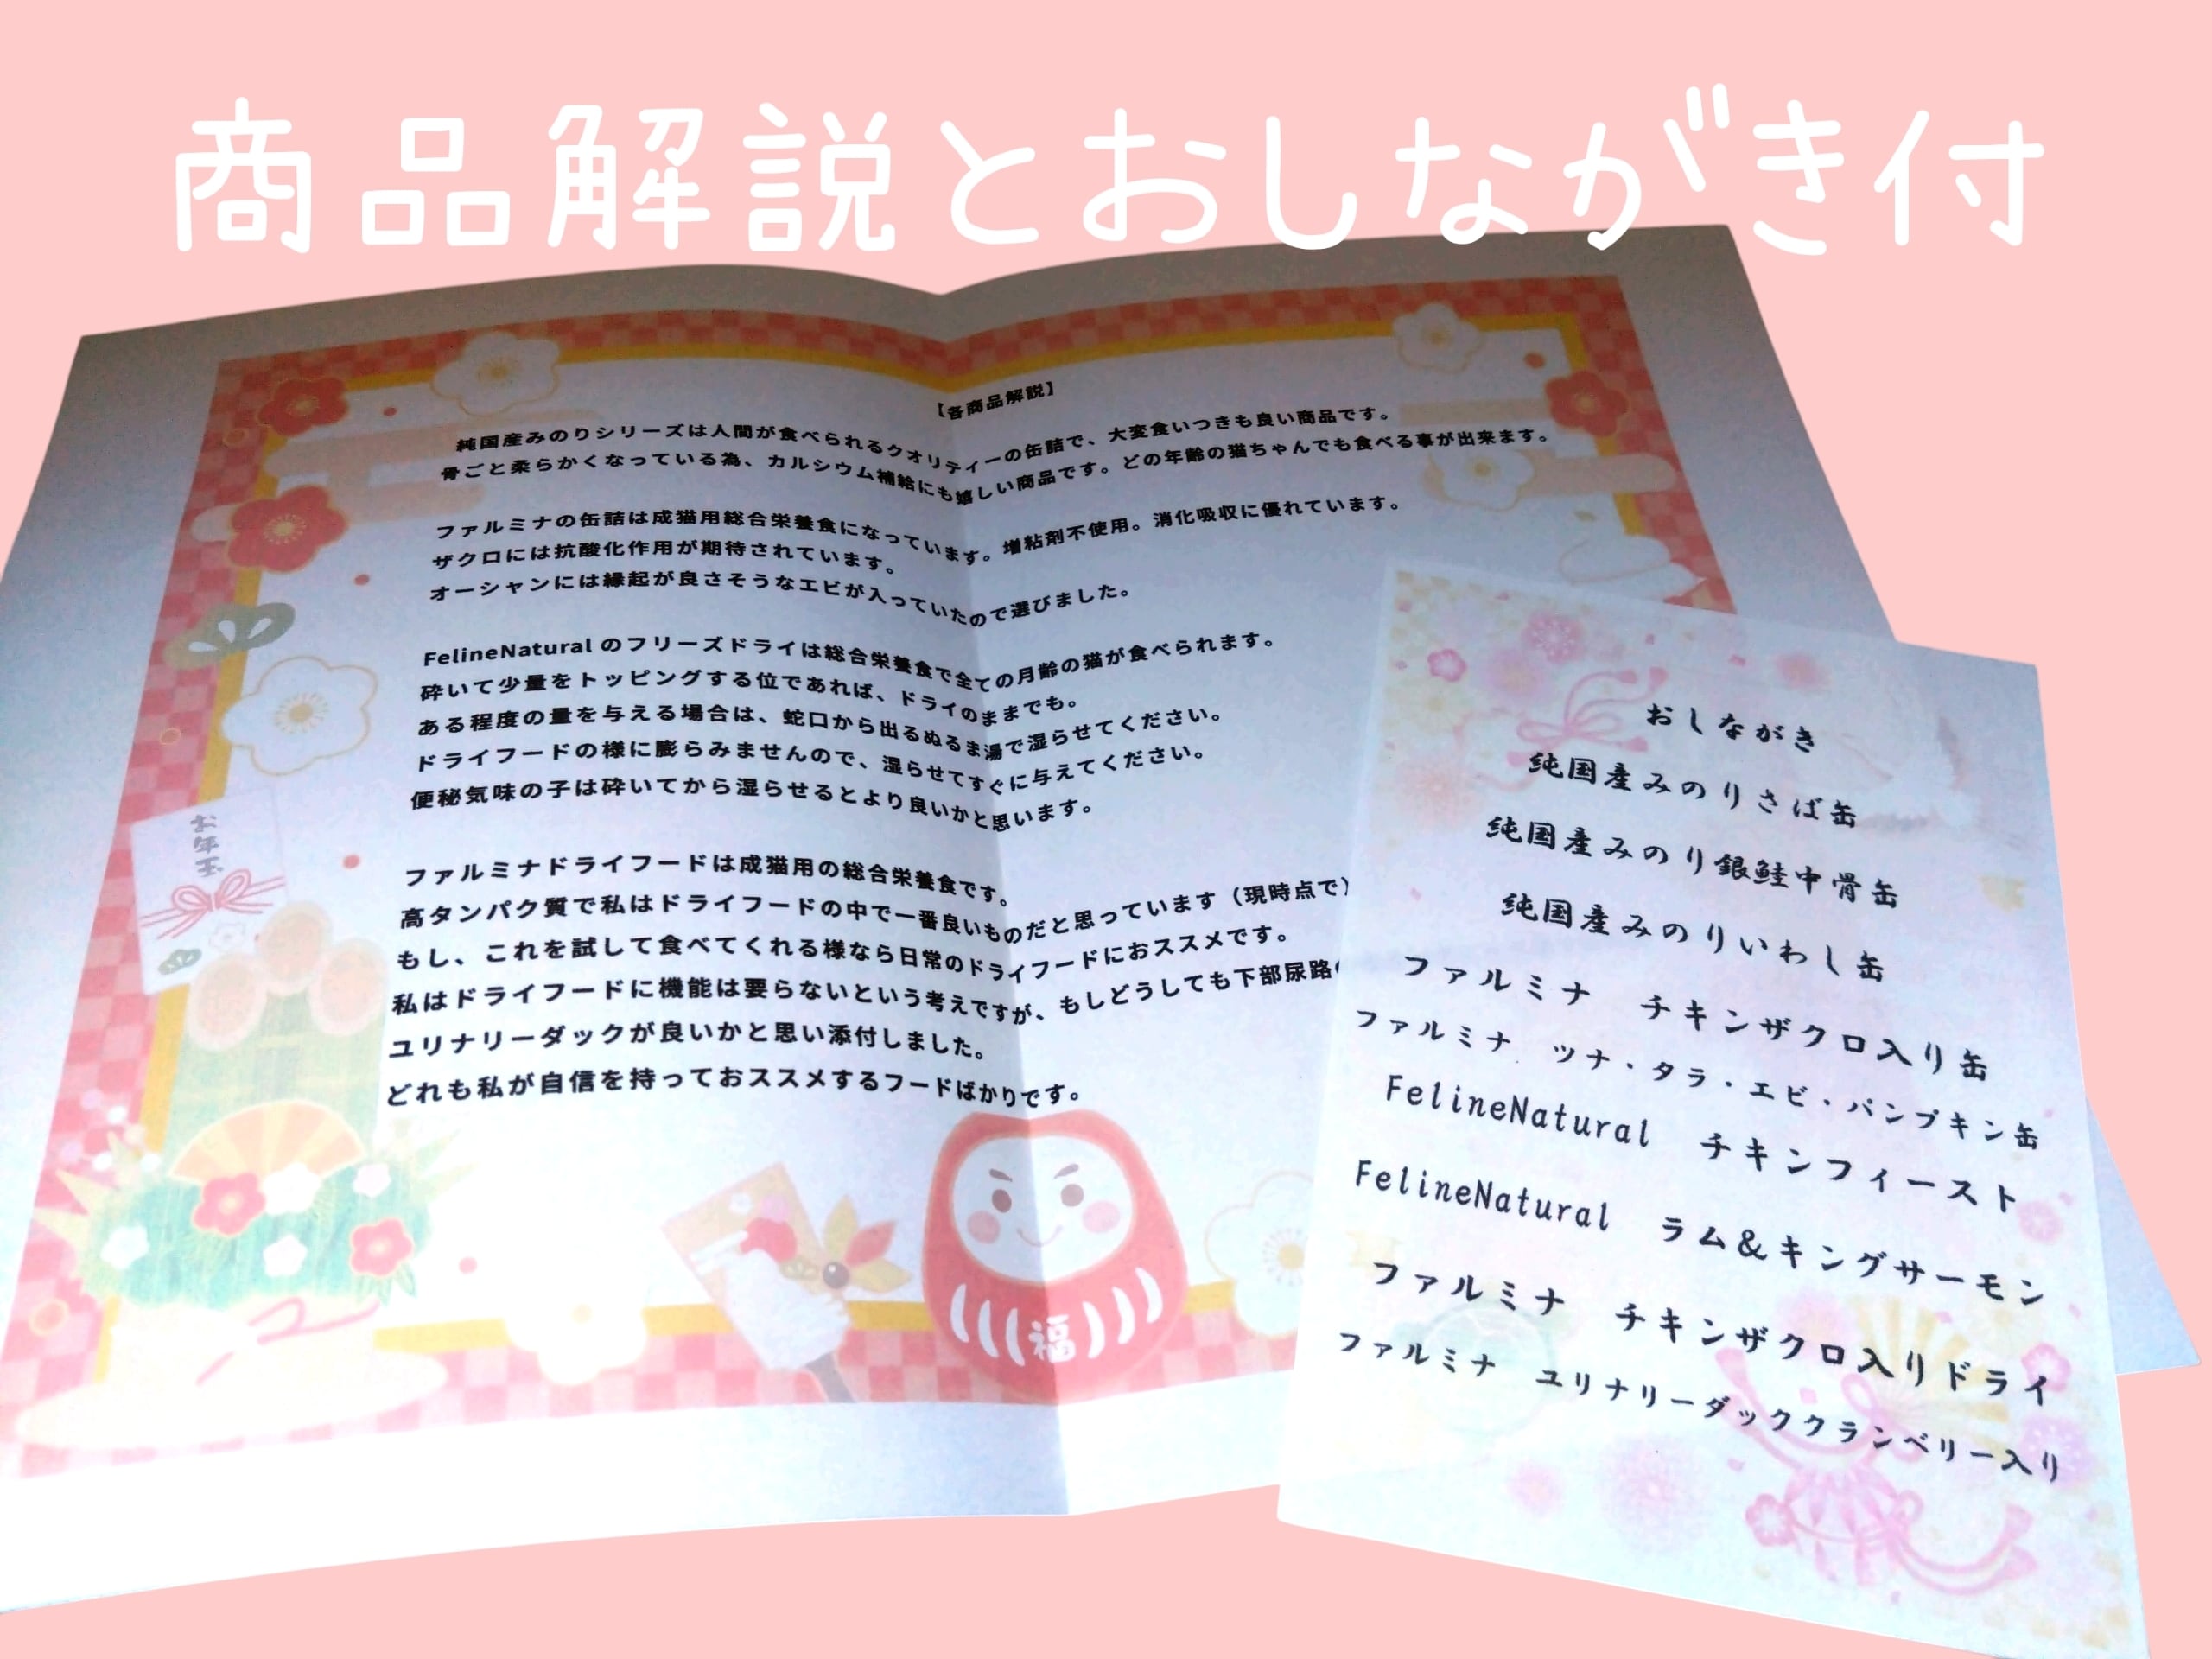 商品解説とおしながき付
【各商品解説】
純国産みのりシリーズは人間が食べられるクオリティーの缶詰で、大変食いつきも良い商品です。
骨ごと柔らかくなっている為、カルシウム補給にも嬉しい商品です。どの年齢の猫ちゃんでも食べる事が出来ます。
ファルミナの缶詰は成猫用総合栄養食になっています。増粘剤不使用。消化吸収に優れています。
ザクロには抗酸化作用が期待されています。
オーシャンには縁起が良さそうなエビが入っていたので選びました。
FelineNaturalのフリーズドライは総合栄養食で全ての月齢の猫が食べられます。
砕いて少量をトッピングする位であれば、ドライのままでも。
ある程度の量を与える場合は、蛇口から出るぬるま湯で湿らせてください。
ドライフードの様に膨らみませんので、湿らせてすぐに与えてください。
便秘気味の子は砕いてから湿らせるとより良いかと思います。
ファルミナドライフードは成猫用の総合栄養食です。
高タンパク質で私はドライフードの中で一番良いものだと思っています（現時点で）
もし、これを試して食べてくれる様なら日常のドライフードにおススメです。
私はドライフードに機能は要らないという考えですが、もしどうしても下部尿路
ユリナリーダックが良いかと思い添付しました。
どれも私が自信を持っておススメするフードばかりです。
お年玉
福
おしながき
純国産みのりさば缶
純国産みのり銀鮭中骨缶
純国産みのりいわし缶
ファルミナ チキンザクロ入り缶
ファルミナ ツナ・タラ・エビ・パンプキン缶
FelineNatural チキンフィースト
FelineNatural ラム&キングサーモン
ファルミナ チキンザクロ入りドライ
ファルミナ ユリナリーダッククランベリー入り